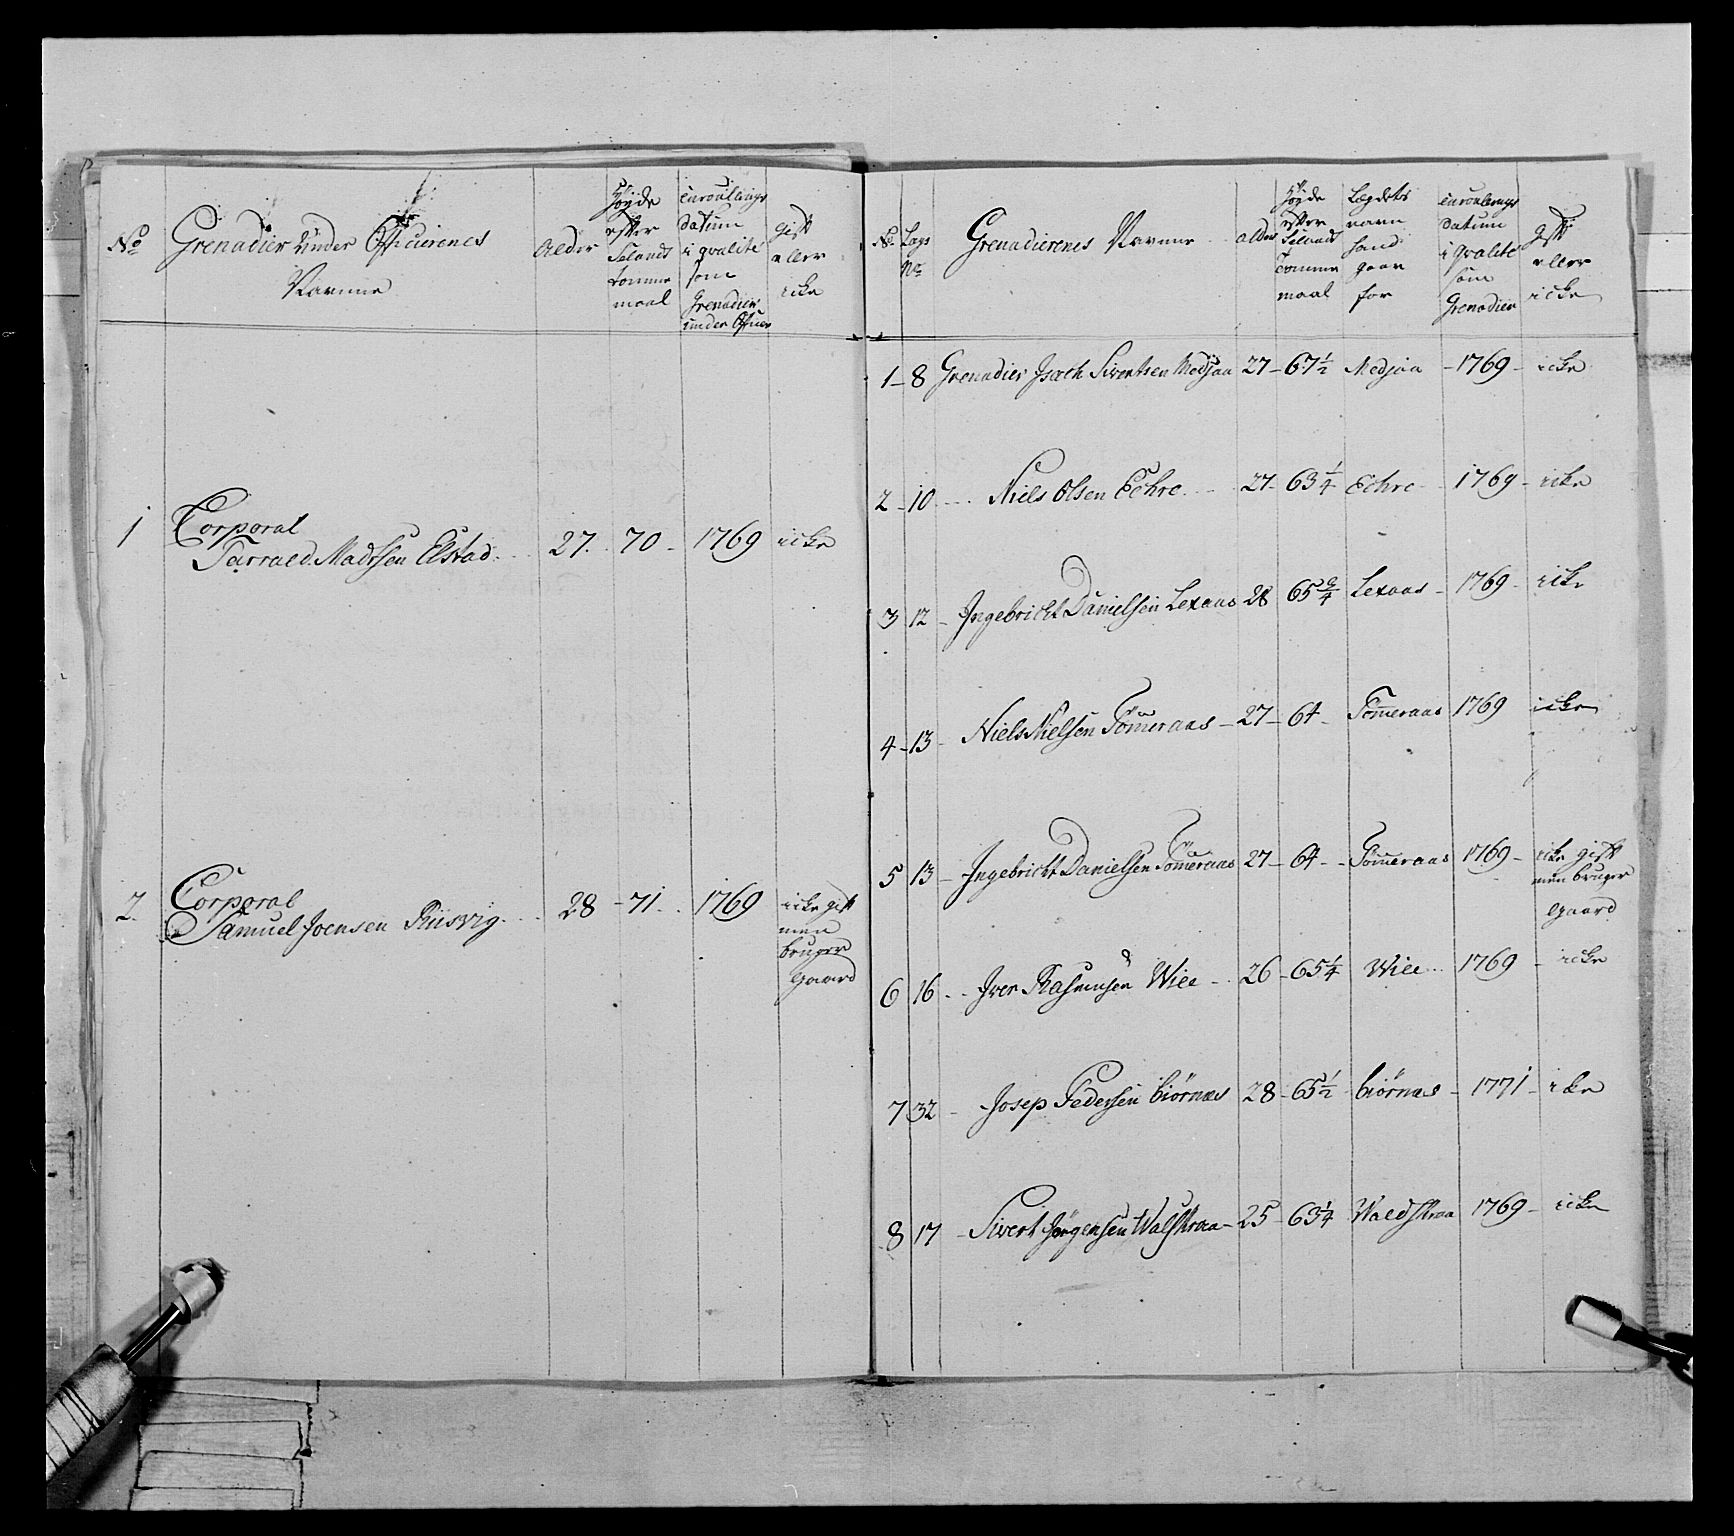 No Grenadier Under Officierenes Navnne Alder Høyde efter Selands tomme maal enroullerings datum i qvalité som Grenadier under Officier gift eller icke
1 Corporal
Tarrald Madssen Elstad 27. 70 1769 icke
2. Corporal
Samuel Joensen Riisvig 28 71 1769 icke gift
men
bruger
gaard
No. Lags No Grenadierenes Navnne alder Høyde efter Selands tomme maal Lægdets navn hand gaar for enroullerings datum i qvalité som Grenadier gift eller icke
1 8 Grenadier Isach Sivertsen Medjaa 27 67 1/2 Medjaa 1769 icke
2 10 Niels Olsen Echre 27 63 1/4 Echre 1769 icke
3 12 Ingebricht Danielsen Lexaas 28 65 3/4 Lexaas 1769 icke
4 13 Niels Nielsen Tømeraas 27 64 Tømeraas 1769 icke
5 13 Ingebricht Danielsen Tømeraas 27 64 Tømeraas 1769 icke gift
men bruger
Gaard
6 16 Iver Rasmusen Wiee 26 65 1/4 Wiee 1769 icke
7 32 Josep Pedersen biørnæs 28 65 1/2 biørnæs 1771 icke
8 17 Sivert Jørgensen Walskraa 25 63 1/4 Waldskraa 1769 icke